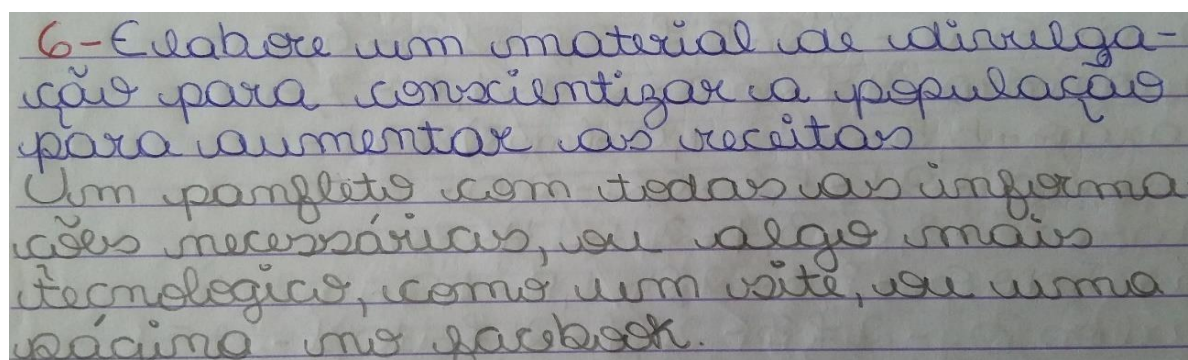 6-Elabore um material de divulga-
ção para conscientizar a população
para aumentar as receitas
Um panfleto com todas as informa
ções necessárias, ou algo mais
tecnologico, como um site, ou uma
página no facebook.